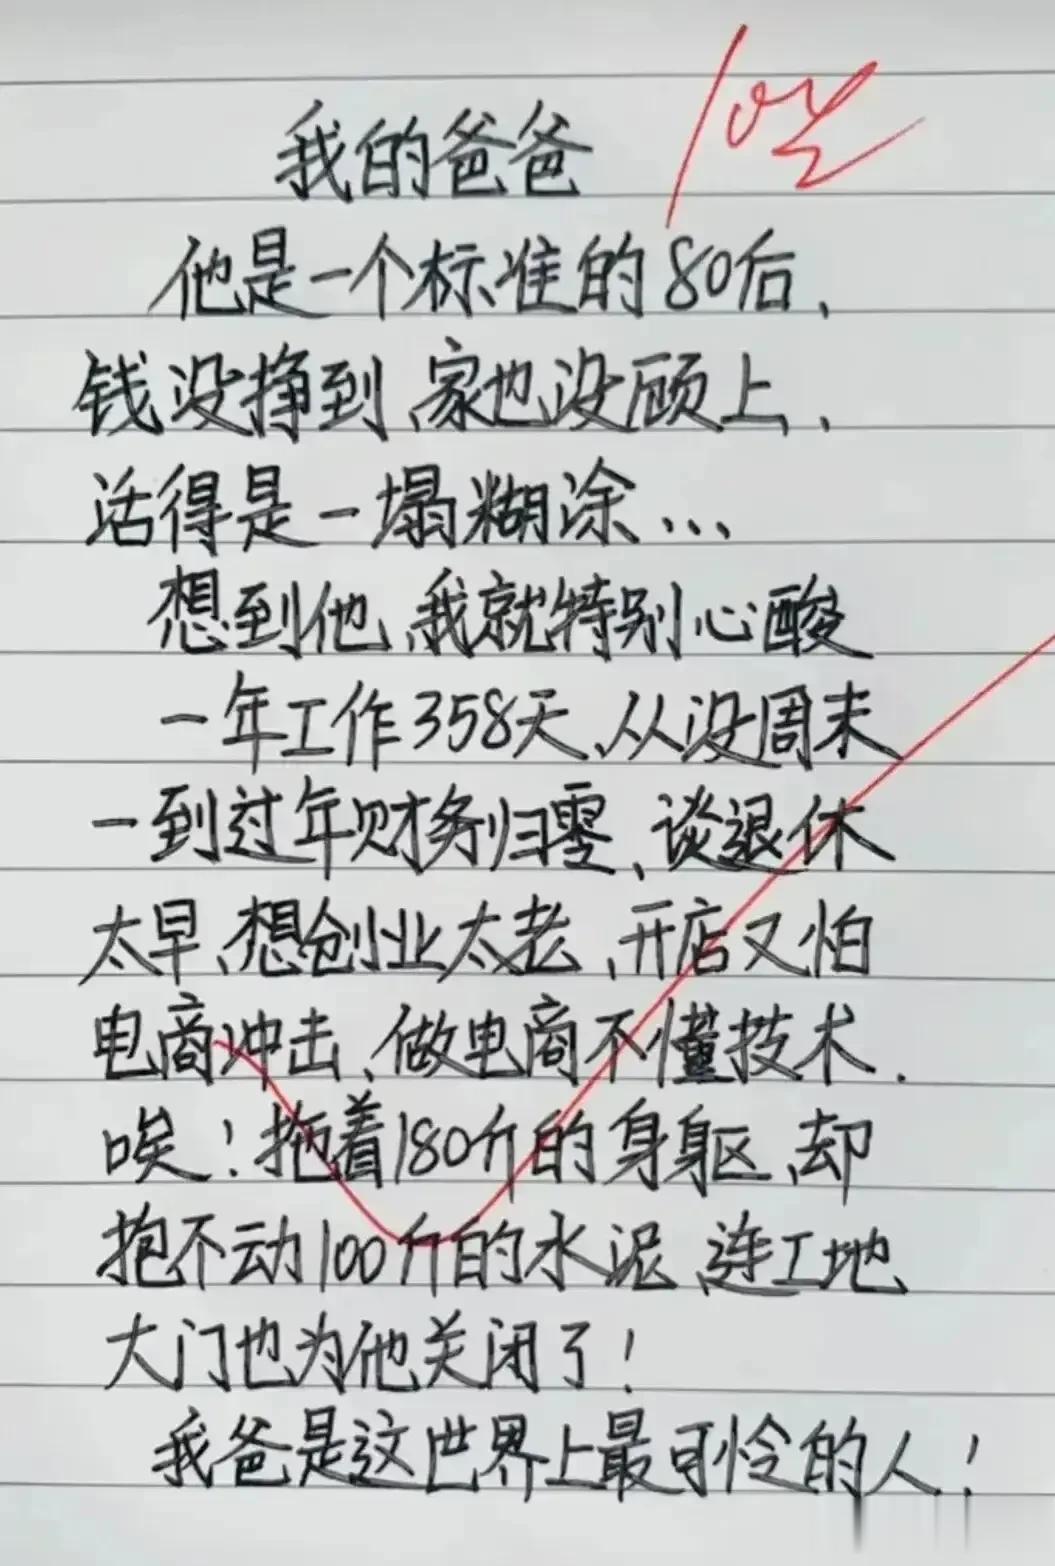 我的爸爸
他是一个标准的80后、
钱没挣到、家也没顾上、
活得是一塌糊涂...
想到他、我就特别心酸
一年工作358天、从没周末
一到过年财务归零、谈退休
太早、想创业太老、开店又怕
电商冲击、做电商不懂技术.
唉！拖着180斤的身躯、却
抱不动100斤的水泥、连工地
大门也为他关闭了！
我爸是这世界上最可怜的人！